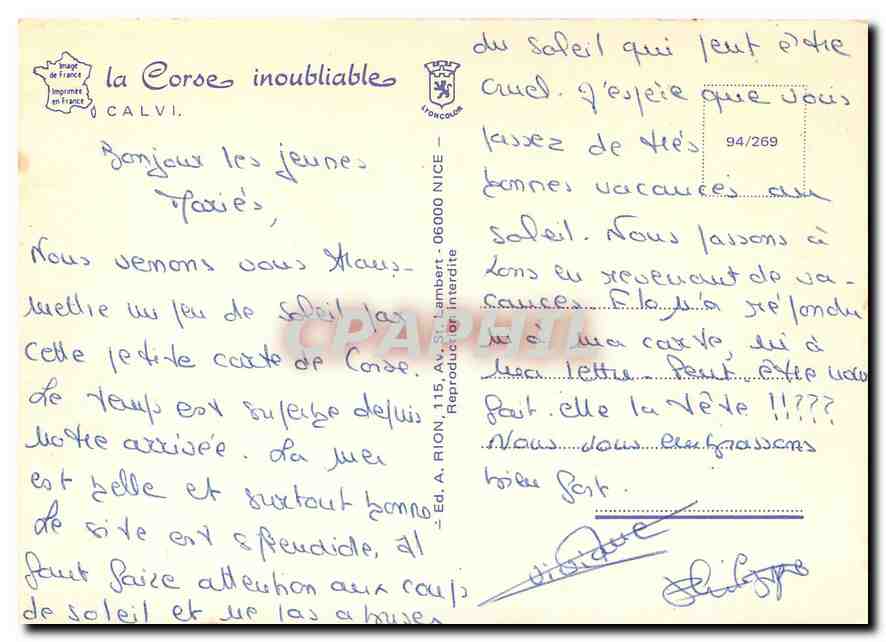 Image
de France
Imprimée
en France
la Corse inoubliable
CALVI.
LYONCOLOR
Bonjour les jeunes
Mariés,
Nous venons vous trans-
mettre un peu de soleil par
cette petite carte de Corse.
Le temps est superbe depuis
notre arrivée. La mer
est belle et surtout bonne
Le site est splendide, il
faut faire attention aux coups
de soleil et ne pas abuser
– Ed. A. RION, 115, Av. St. Lambert - 06000 NICE –
Reproduction Interdite
CPAPHIL
du soleil qui peut être
cruel. J'espère que vous
94/269
passez de très
bonnes vacances au
soleil. Nous passons à
Lons en revenant de va-
cances. Flo n'a répondu
ni à ma carte, ni à
ma lettre. Peut être nous
fait-elle la tête !!???
Nous vous embrassons
bien fort.
Philippe